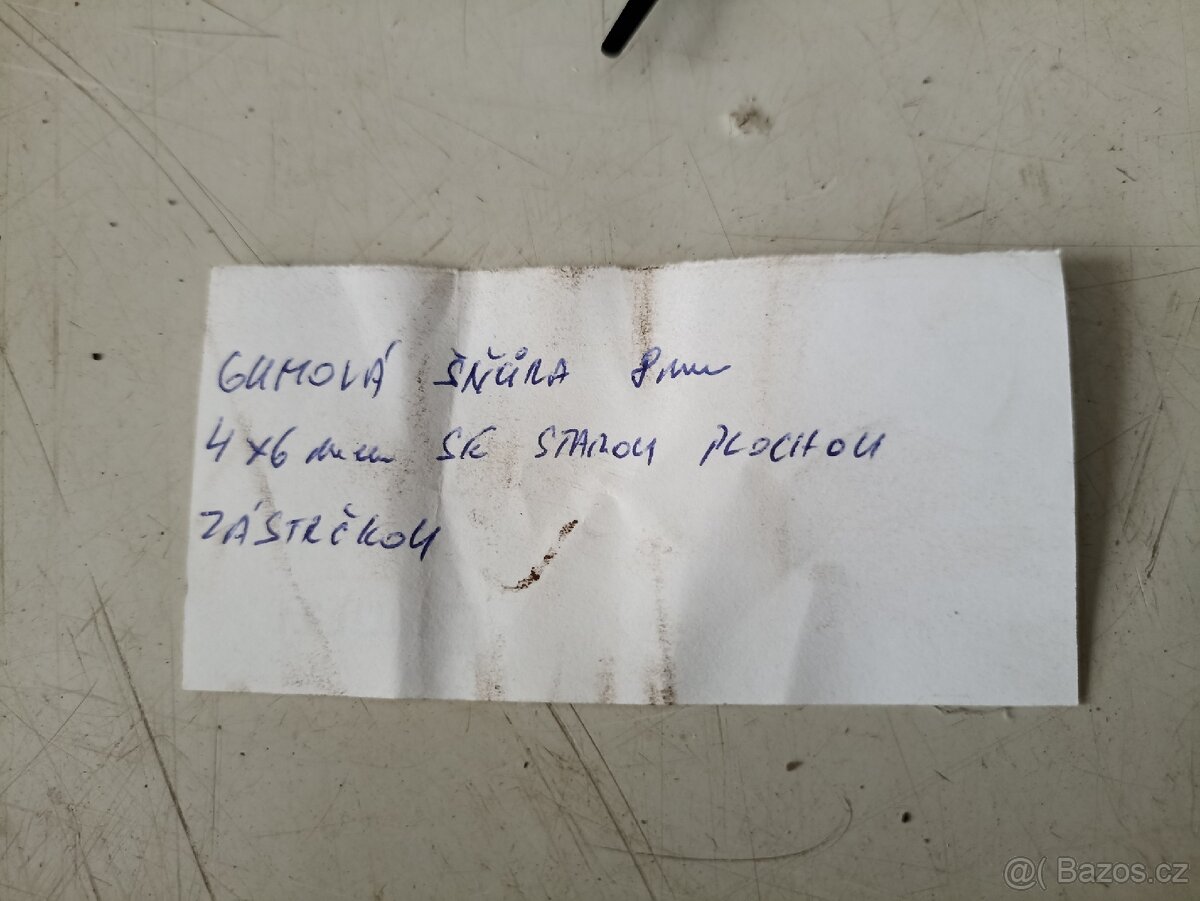 GUMOVÁ ŠŇŮRA 8mm
4x6 mm SE STAROU PLOCHOU
ZÁSTRČKOU
@( Bazos.cz